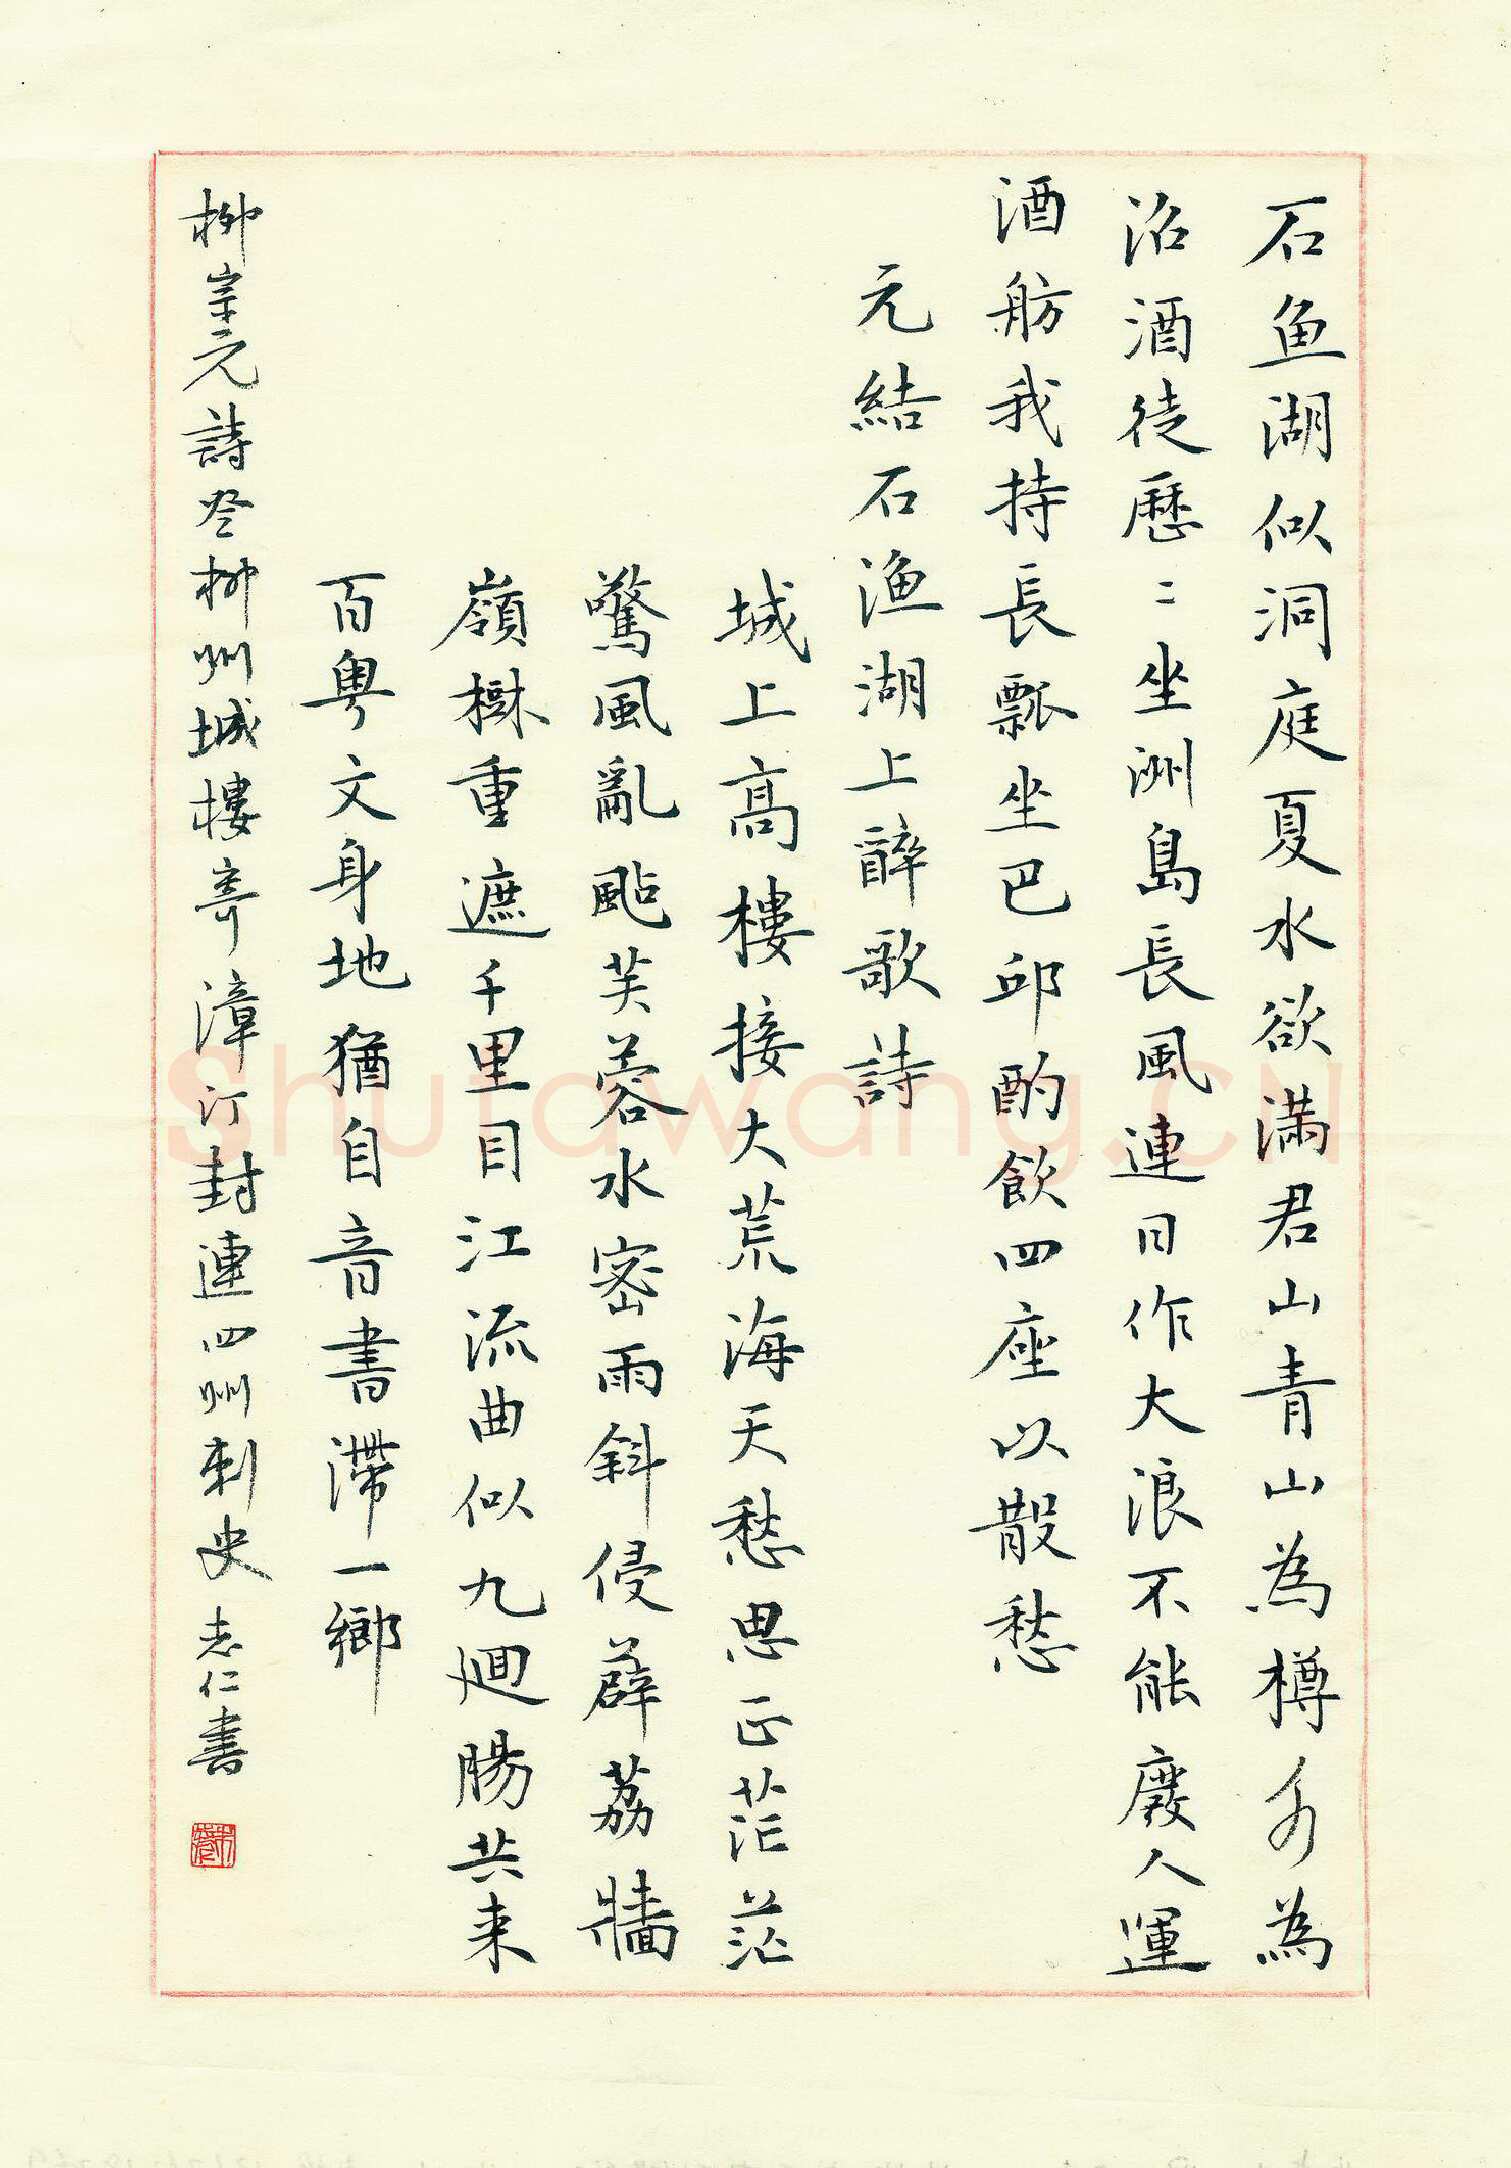 石鱼湖似洞庭夏水欲满君山青山為樽水為
沼酒徒歷二坐洲島長風連日作大浪不能廢人運
酒舫我持長瓢坐巴邱酌飲四座以散愁
元結石渔湖上醉歌詩
城上高樓接大荒海天愁思正茫茫
驚風亂颭芙蓉水密雨斜侵薜荔牆
嶺樹重遮千里目江流曲似九廻腸共来
百粤文身地猶自音書滯一鄉
柳宗元詩登柳州城樓寄漳汀封連四州刺史 志仁書
Shufawang.CN